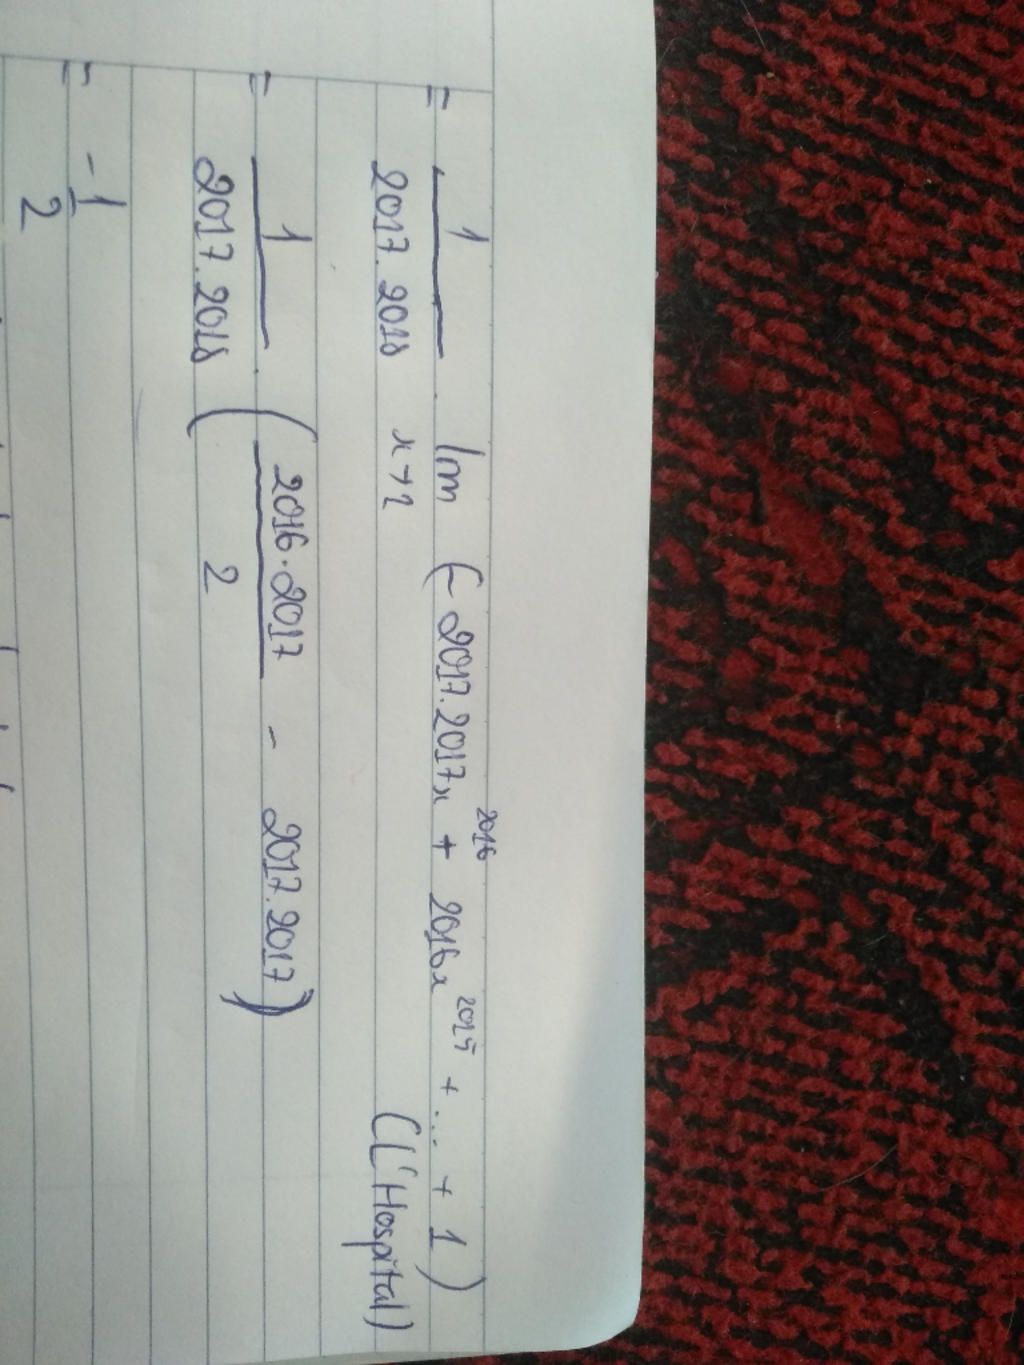 = 1/2017.2018 . lim x→1 (-2017.2017x^2016 + 2016x^2015 + ... + 1)
(L'Hospital)
= 1/2017.2018 . (2016.2017/2 - 2017.2017)
= -1/2